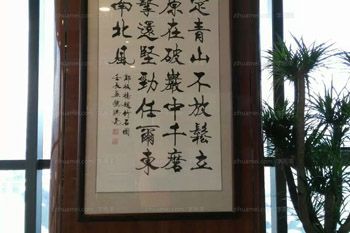 定青山不放鬆立
原在破巖中千磨
擊還堅勁任爾東
南北風
鄭板橋題竹石圖